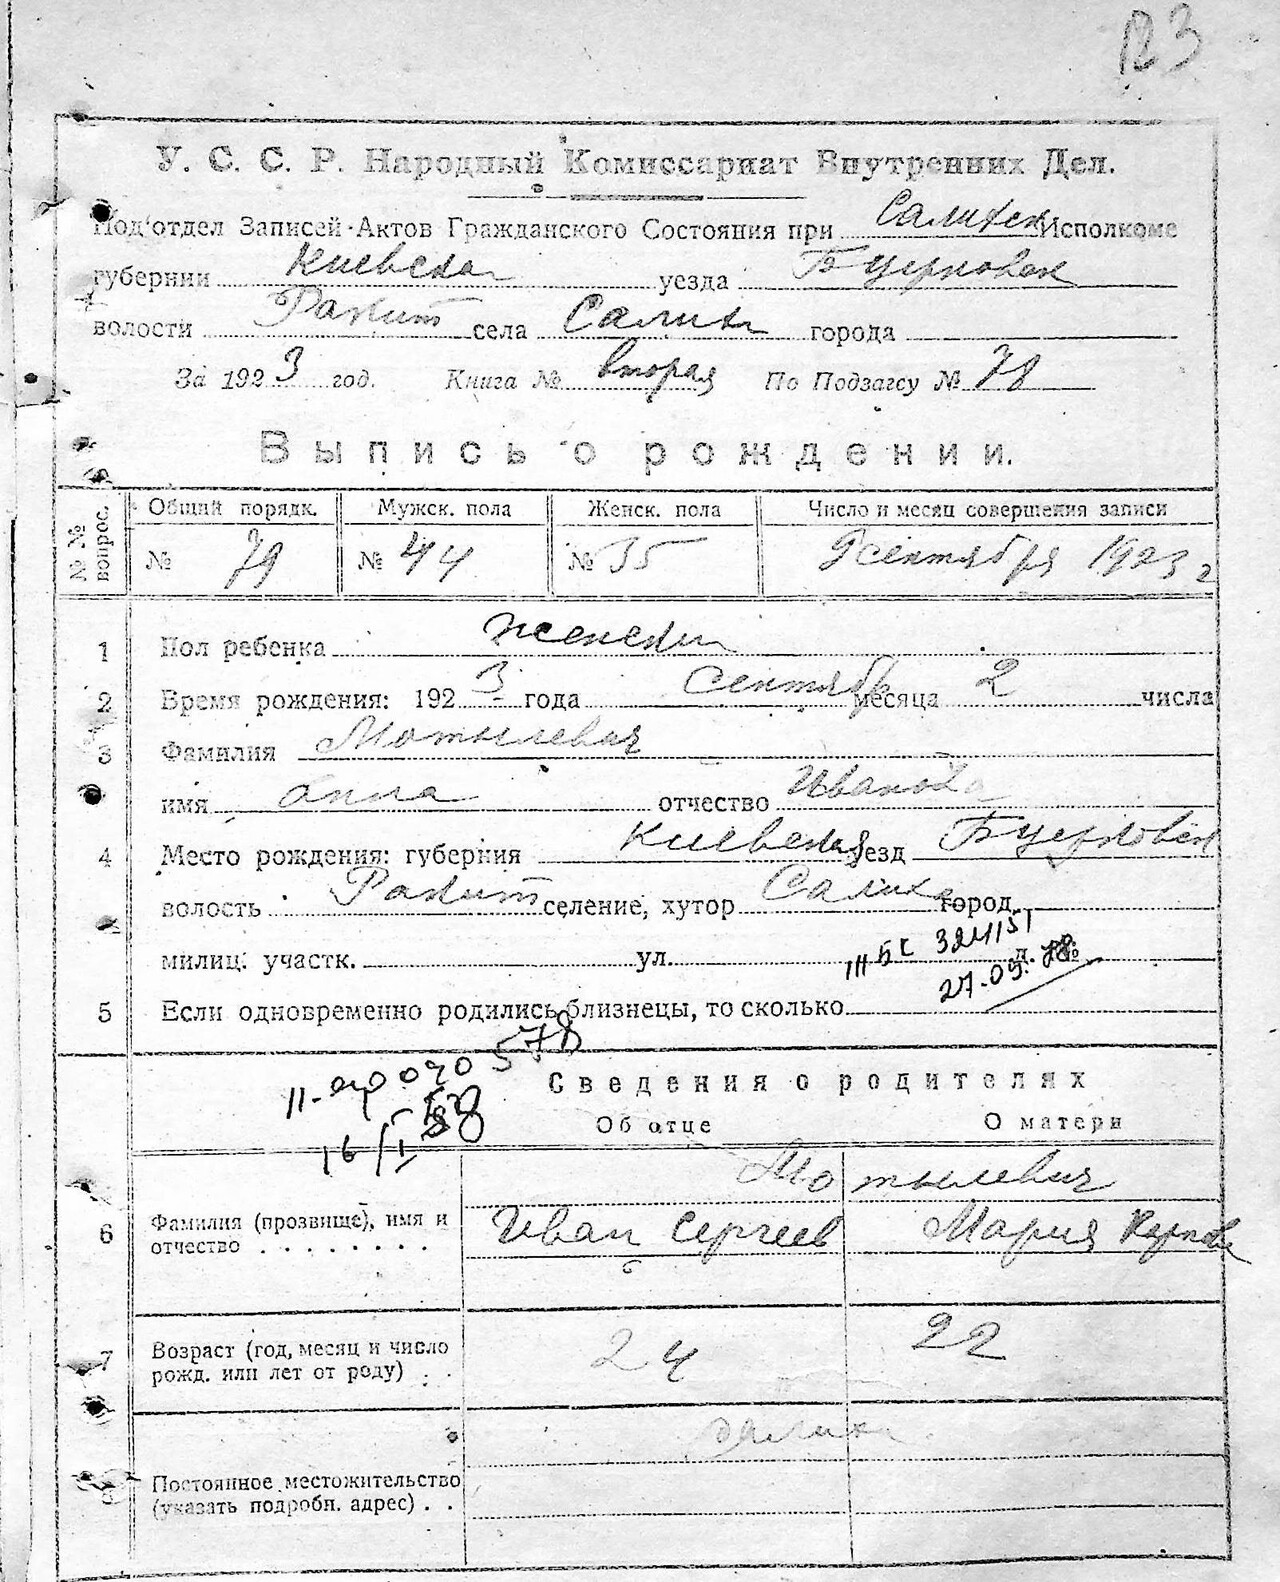 123
У. С. С. Р. Народный Комиссариат Внутренних Дел.
Под'отдел Записей Актов Гражданского Состояния при Салихск Исполкоме
губернии Киевская уезда Бцерковск
волости Ракит села Салиха города
За 1923 год. Книга № вторая По Подзагсу № 78
Выпись о рождении.
№ № вопрос. Общий порядк. Мужск. пола Женск. пола Число и месяц совершения записи
№ 79 № 44 № 35 9 сентября 1923 г
1 Пол ребенка женский
2 Время рождения: 1923 года сентябр месяца 2 числа
3 Фамилия Мотылевич
имя Анна отчество Иванова
4 Место рождения: губерния Киевская уезд Бцерковск
волость Ракит селение, хутор Салиха город
милиц. участк. ул. д. №
III БК 324151
27.09.78
5 Если одновременно родились близнецы, то сколько
040578
Сведения о родителях
Об отце О матери
6 Фамилия (прозвище), имя и отчество . . . . . . . .
Мотылевич
Иван Сергеев Мария Карпова
7 Возраст (год, месяц и число рожд. или лет от роду) . . 24 22
8 Постоянное местожительство (указать подробн. адрес) . . Салиха